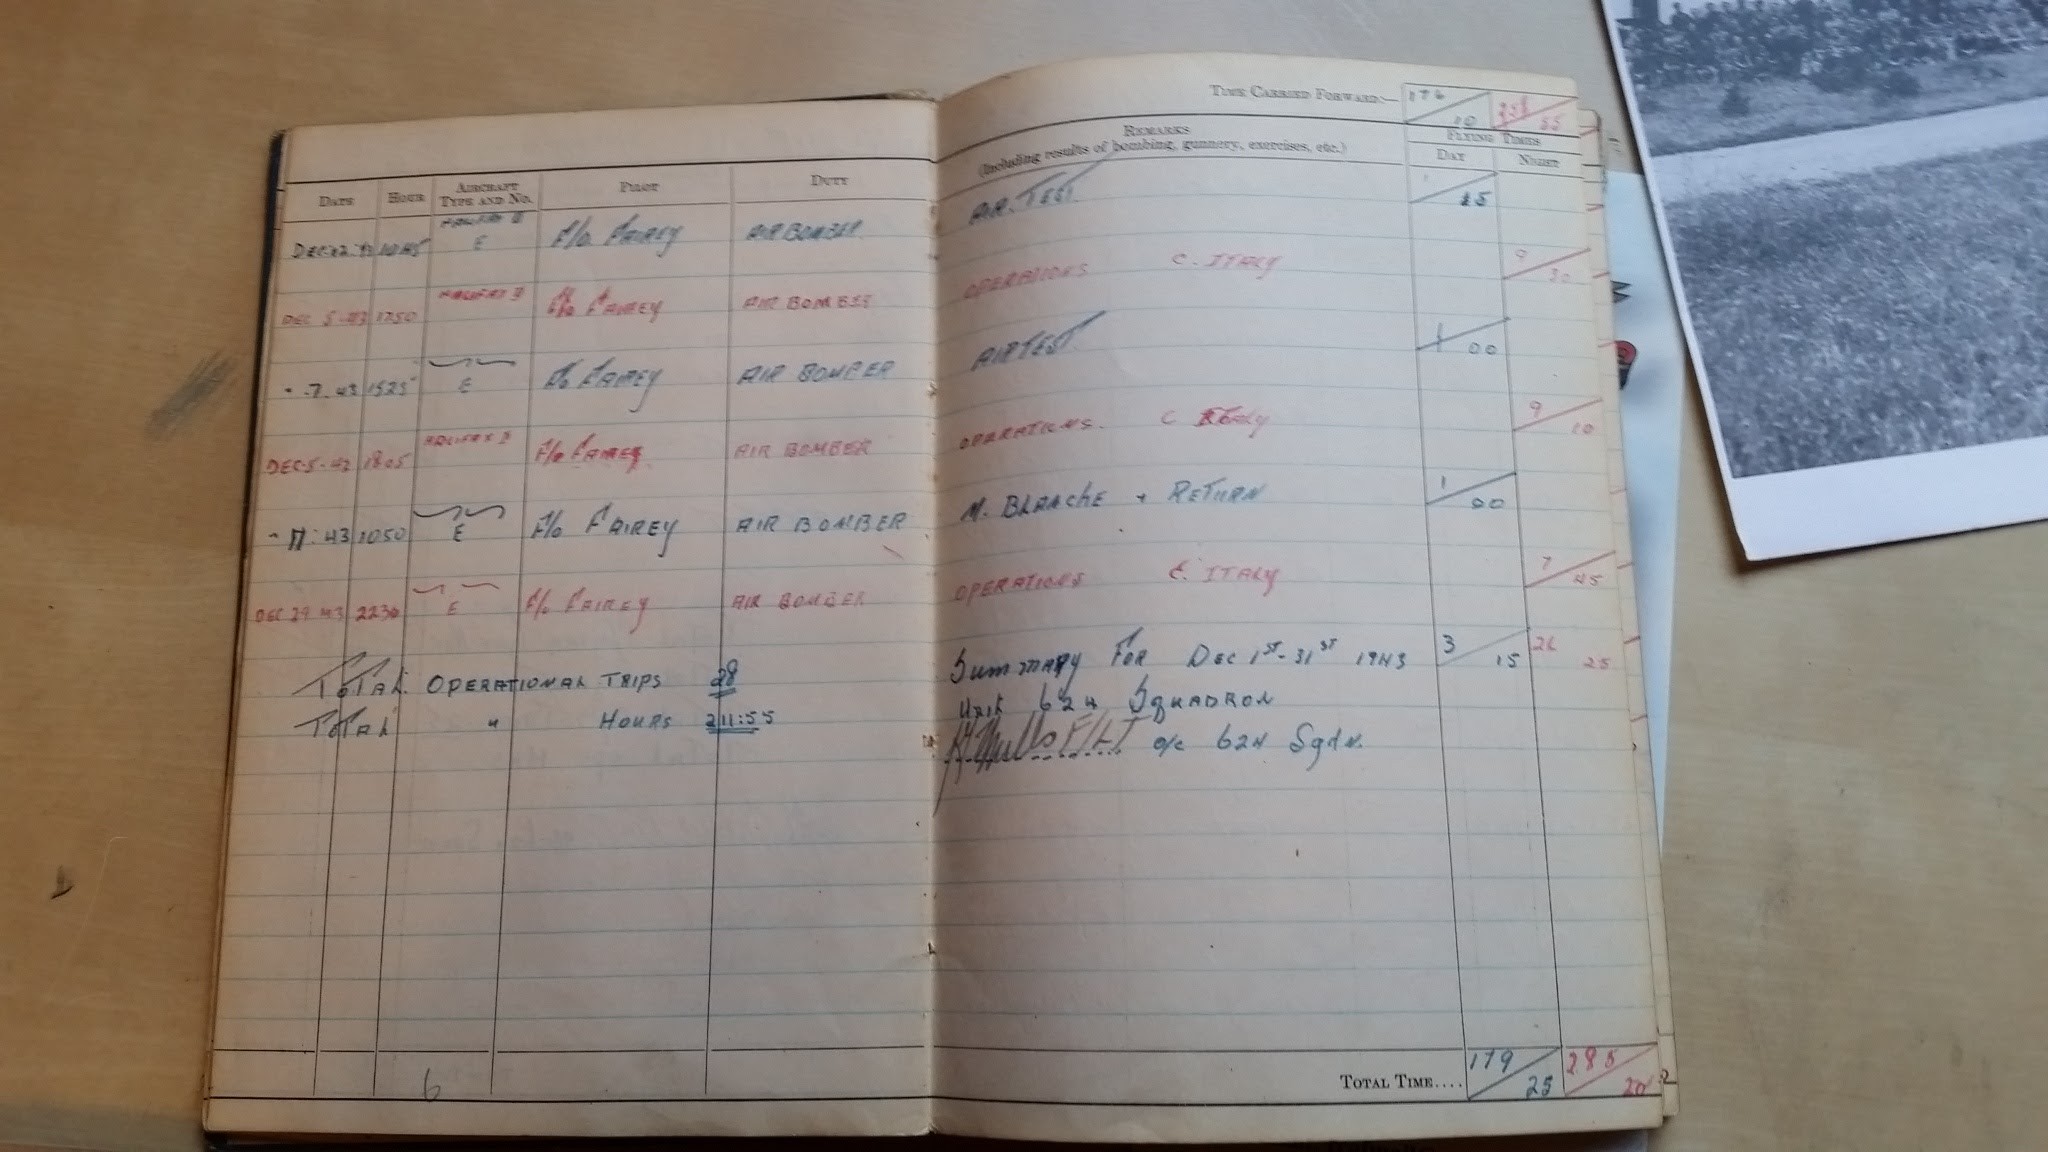 TIME CARRIED FORWARD:— 176 10 258 55
REMARKS
(Including results of bombing, gunnery, exercises, etc.)
FLYING TIMES
DAY NIGHT
DATE HOUR AIRCRAFT TYPE AND No. PILOT DUTY
HALIFAX II E F/o FAIREY AIR BOMBER AIR. TEST 1 15
DEC 5-43 1750 HALIFAX II F/o FAIREY AIR BOMBER OPERATIONS C. ITALY 9 30
" .7. 43 1525 E F/o FAIREY AIR BOMBER AIR TEST 1 00
HALIFAX II F/o FAIREY AIR BOMBER OPERATIONS. C ITALY 9 10
43 1050 E F/o FAIREY AIR BOMBER M. BLANCHE + RETURN 1 00
DEC 29 43 2230 E F/o FAIREY AIR BOMBER OPERATIONS C. ITALY 7 45
TOTAL. OPERATIONAL TRIPS 28 Summary FOR DEC 1ST-31ST 1943 3 15 26 25
TOTAL " HOURS 211:55 Unit 624 SQUADRON
F/LT o/c 624 Sqdn.
TOTAL TIME.... 179 25 285 20
6